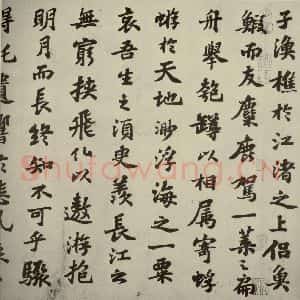 子漁樵於江渚之上侶魚
鰕而友麋鹿駕一葉之扁
舟舉匏罇以相属寄蜉
蝣於天地渺浮海之一粟
哀吾生之須臾羨長江之
無窮挟飛仙以遨游抱
明月而長終知不可乎驟
得託遺響於悲風
Shufawang.CN